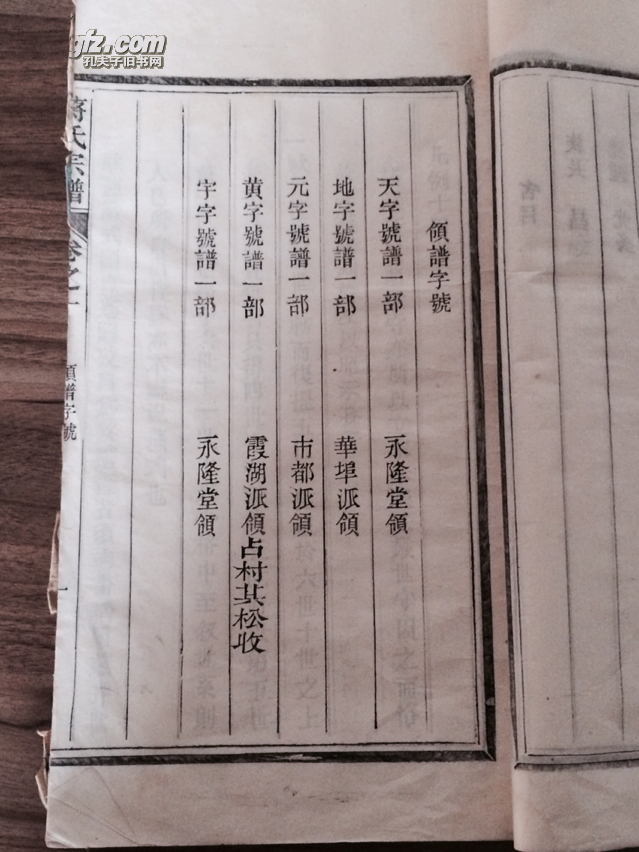 gfz.com
孔夫子旧书网
領譜字號
天字號譜一部 永隆堂領
地字號譜一部 華埠派領
元字號譜一部 市都派領
黄字號譜一部 霞湖派領占村其松收
宇字號譜一部 永隆堂領
蔣氏宗譜 卷之一 領譜字號 一